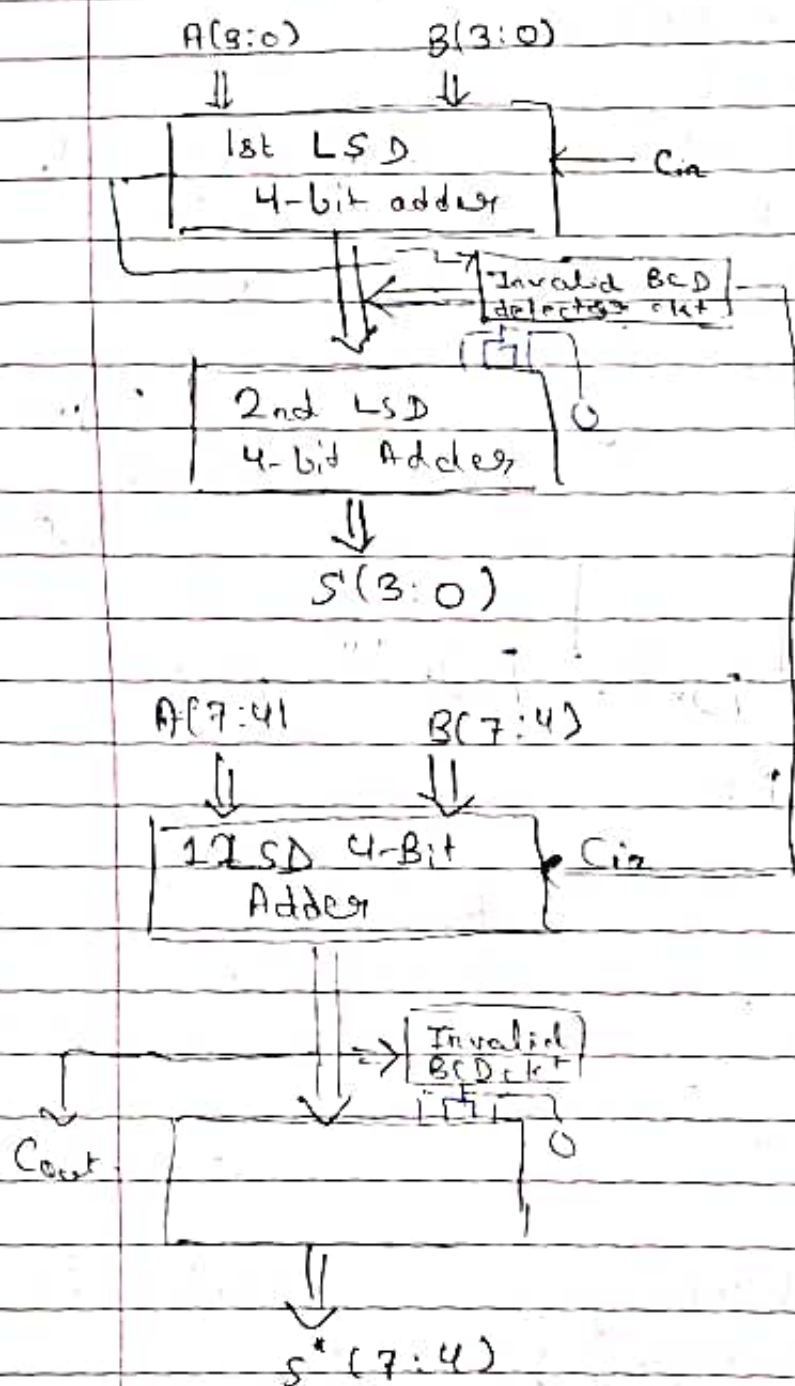 A(3:0) B(3:0)
1st LSD
4-bit adder
Cin
Invalid BCD
ckt
0
2nd LSD
4-bit Adder
S(3:0)
A(7:4) B(7:4)
4-Bit
Adder
Cin
Invalid
BCD ckt
Cout
0
S*(7:4)